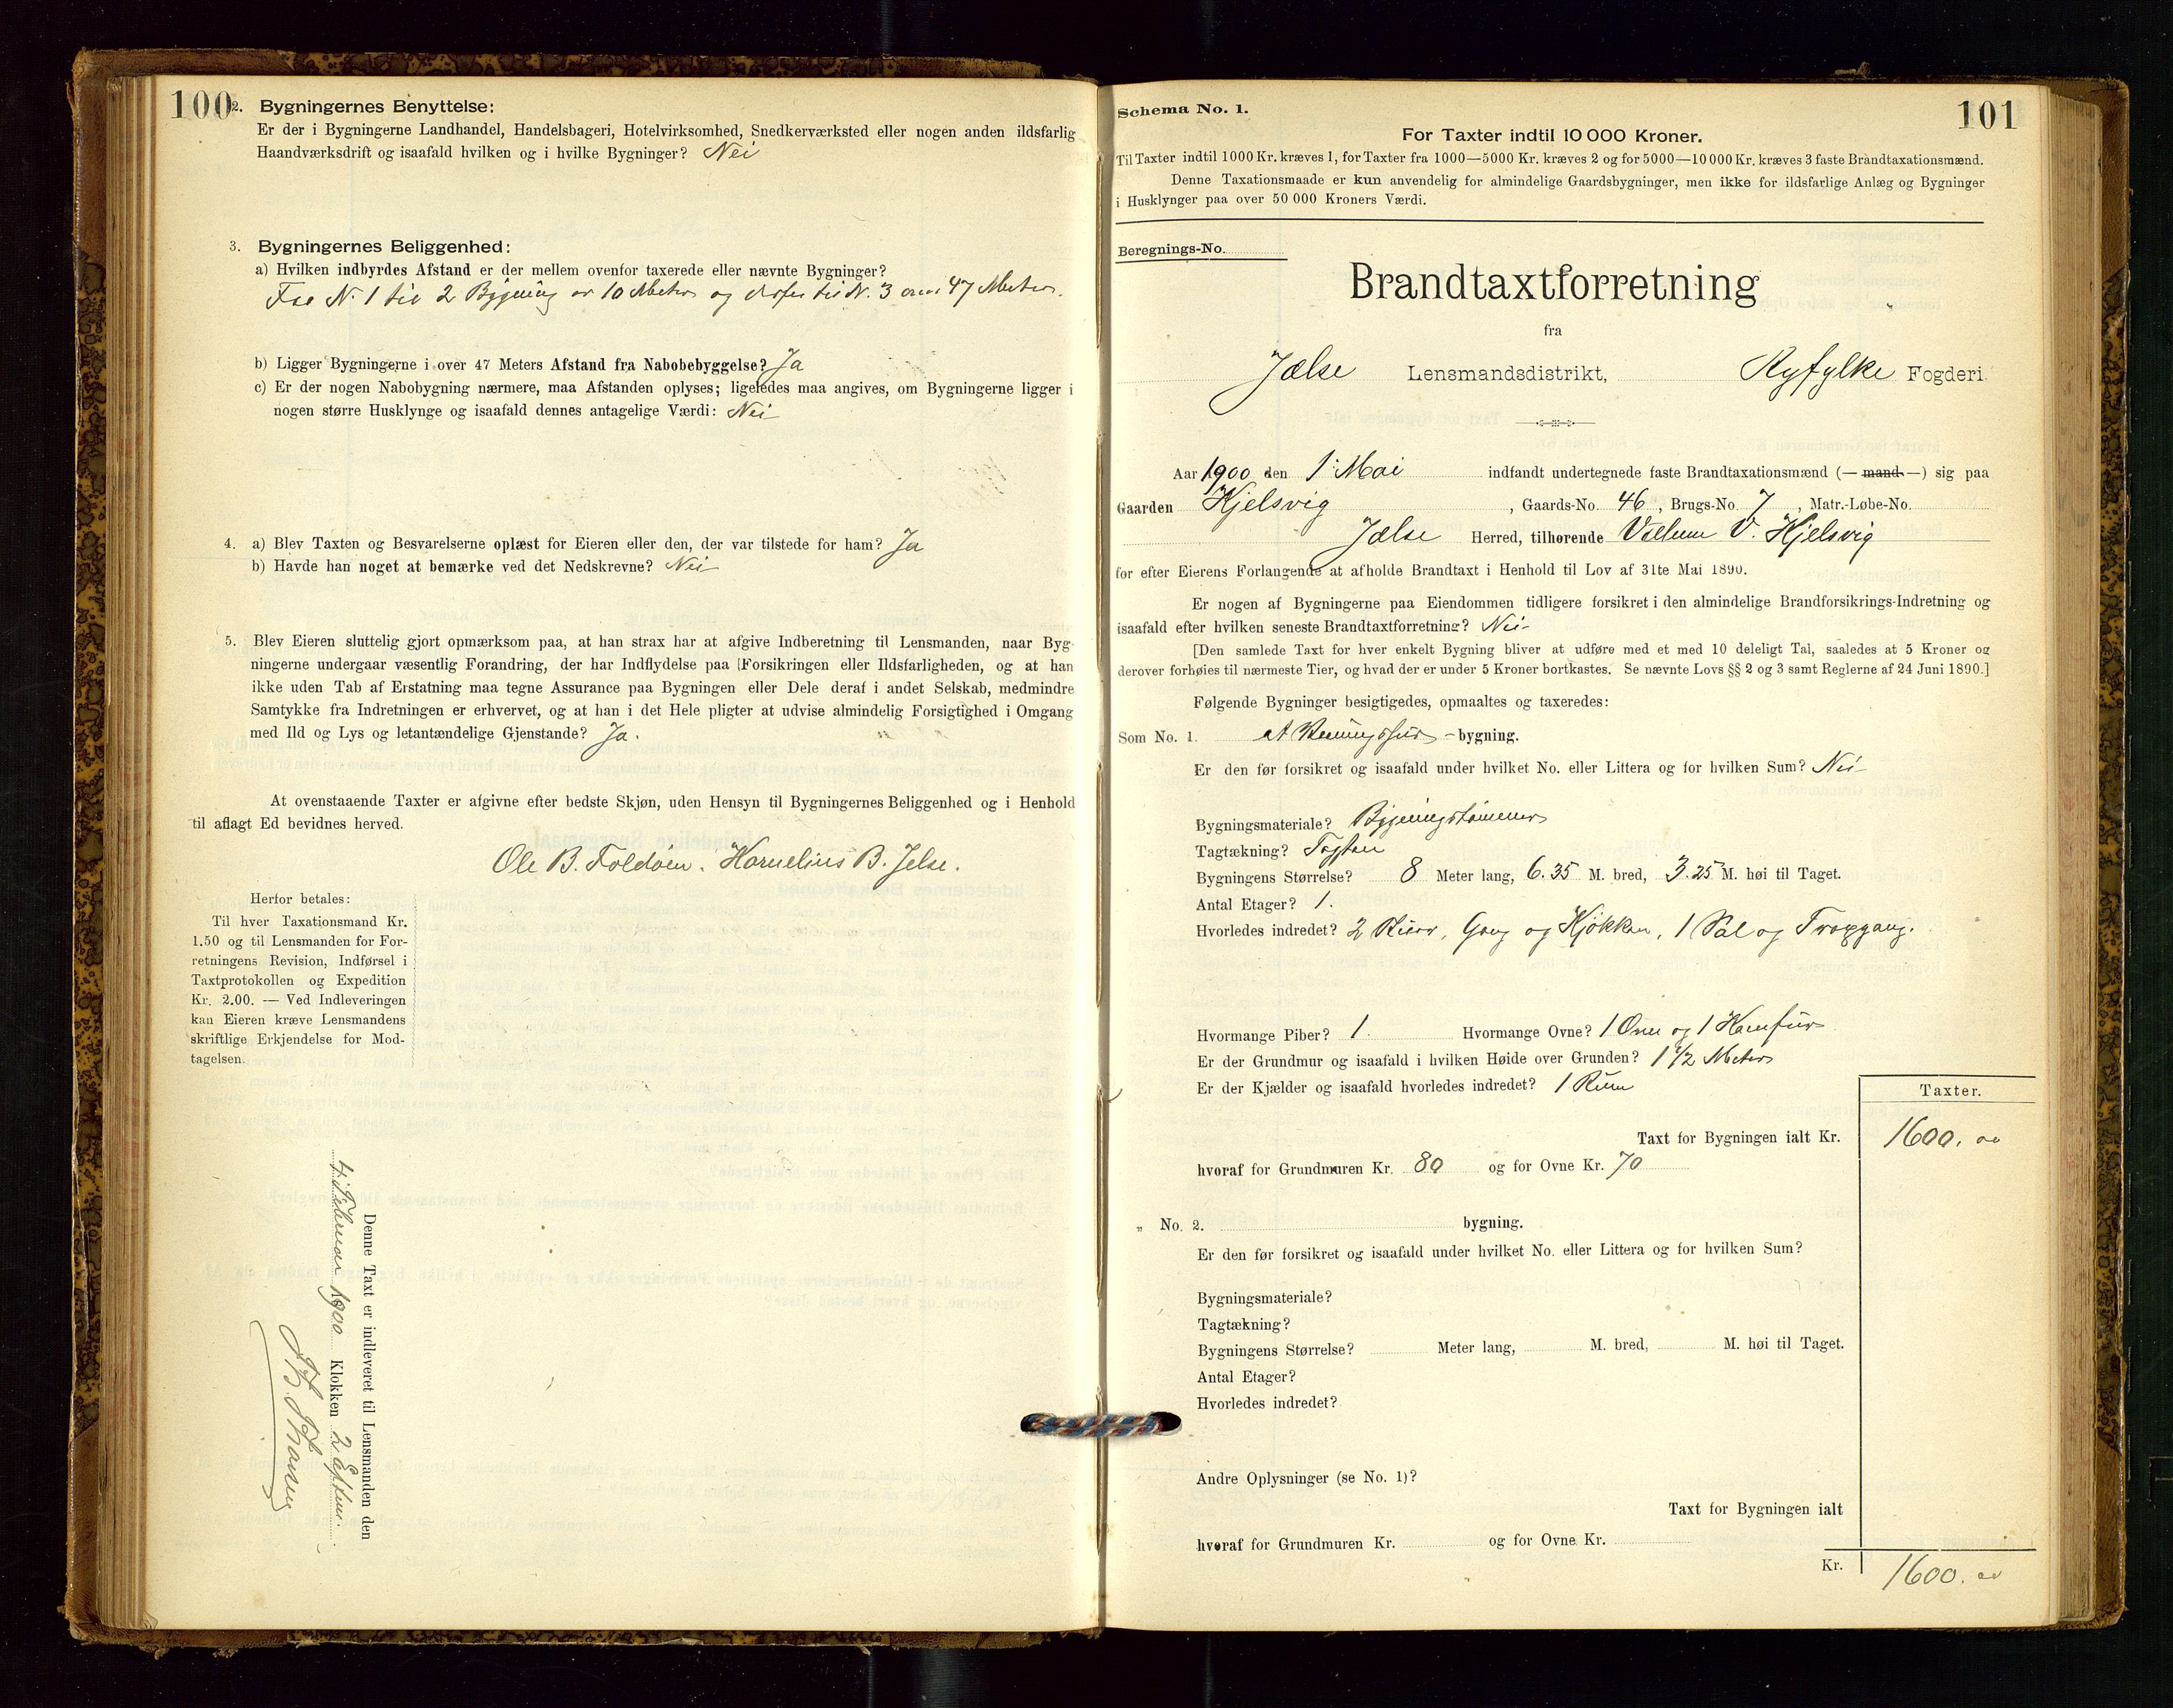 100
2. Bygningernes Benyttelse:
Er der i Bygningerne Landhandel, Handelsbageri, Hotelvirksomhed, Snedkerværksted eller nogen anden ildsfarlig
Haandværksdrift og isaafald hvilken og i hvilke Bygninger? Nei
3. Bygningernes Beliggenhed:
a) Hvilken indbyrdes Afstand er der mellem ovenfor taxerede eller nævnte Bygninger?
Fra N. 1 til 2 Bygning er 10 Meter og derfra til N. 3 over 47 Meter.
b) Ligger Bygningerne i over 47 Meters Afstand fra Nabobebyggelse? Ja
c) Er der nogen Nabobygning nærmere, maa Afstanden oplyses; ligeledes maa angives, om Bygningerne ligger i
nogen større Husklynge og isaafald dennes antagelige Værdi: Nei
4. a) Blev Taxten og Besvarelserne oplæst for Eieren eller den, der var tilstede for ham? Ja
b) Havde han noget at bemærke ved det Nedskrevne? Nei
5. Blev Eieren sluttelig gjort opmærksom paa, at han strax har at afgive Indberetning til Lensmanden, naar Byg-
ningerne undergaar væsentlig Forandring, der har Indflydelse paa Forsikringen eller Ildsfarligheden, og at han
ikke uden Tab af Erstatning maa tegne Assurance paa Bygningen eller Dele deraf i andet Selskab, medmindre
Samtykke fra Indretningen er erhvervet, og at han i det Hele pligter at udvise almindelig Forsigtighed i Omgang
med Ild og Lys og letantændelige Gjenstande? Ja.
At ovenstaaende Taxter er afgivne efter bedste Skjøn, uden Hensyn til Bygningernes Beliggenhed og i Henhold
til aflagt Ed bevidnes herved.
Ole B. Foldøen. Kornelius B. Jelse.
Herfor betales:
Til hver Taxationsmand Kr.
1.50 og til Lensmanden for For-
retningens Revision, Indførsel i
Taxtprotokollen og Expedition
Kr. 2.00. — Ved Indleveringen
kan Eieren kræve Lensmandens
skriftlige Erkjendelse for Mod-
tagelsen.
Denne Taxt er indleveret til Lensmanden den
4. Februar 1900 Klokken 2 Efterm.
101
Schema No. 1.
For Taxter indtil 10 000 Kroner.
Til Taxter indtil 1000 Kr. kræves 1, for Taxter fra 1000—5000 Kr. kræves 2 og for 5000—10 000 Kr. kræves 3 faste Brandtaxationsmænd.
Denne Taxationsmaade er kun anvendelig for almindelige Gaardsbygninger, men ikke for ildsfarlige Anlæg og Bygninger
i Husklynger paa over 50 000 Kroners Værdi.
Beregnings-No.
Brandtaxtforretning
fra
Jælse Lensmandsdistrikt, Ryfylke Fogderi.
Aar 1900 den 1. Mai indfandt undertegnede faste Brandtaxationsmænd (— mand —) sig paa
Gaarden Kjelsvig, Gaards-No. 46, Brugs-No. 7, Matr.-Løbe-No.
Jælse Herred, tilhørende V. Kjelsvig
for efter Eierens Forlangende at afholde Brandtaxt i Henhold til Lov af 31te Mai 1890.
Er nogen af Bygningerne paa Eiendommen tidligere forsikret i den almindelige Brandforsikrings-Indretning og
isaafald efter hvilken seneste Brandtaxtforretning? Nei
[Den samlede Taxt for hver enkelt Bygning bliver at udføre med et med 10 deleligt Tal, saaledes at 5 Kroner og
derover forhøies til nærmeste Tier, og hvad der er under 5 Kroner bortkastes. Se nævnte Lovs §§ 2 og 3 samt Reglerne af 24 Juni 1890.]
Følgende Bygninger besigtigedes, opmaaltes og taxeredes:
Som No. 1. et -bygning.
Er den før forsikret og isaafald under hvilket No. eller Littera og for hvilken Sum? Nei
Bygningsmateriale? Bygningstømmer
Tagtækning? Tagsten
Bygningens Størrelse? 8 Meter lang, 6.35 M. bred, 3.25 M. høi til Taget.
Antal Etager? 1.
Hvorledes indredet? 2 Stuer, Gang og Kjøkken, 1 Sal og Trapgang.
Hvormange Piber? 1. Hvormange Ovne? 1 Ovn og 1 Komfur
Er der Grundmur og isaafald i hvilken Høide over Grunden? 1 1/2 Meter
Er der Kjælder og isaafald hvorledes indredet? 1 Rum
Taxter.
Taxt for Bygningen ialt Kr. 1600. 00
hvoraf for Grundmuren Kr. 80 og for Ovne Kr. 70
„ No. 2. bygning.
Er den før forsikret og isaafald under hvilket No. eller Littera og for hvilken Sum?
Bygningsmateriale?
Tagtækning?
Bygningens Størrelse? Meter lang, M. bred, M. høi til Taget.
Antal Etager?
Hvorledes indredet?
Andre Oplysninger (se No. 1)?
Taxt for Bygningen ialt
hvoraf for Grundmuren Kr. og for Ovne Kr.
Kr. 1600. 00